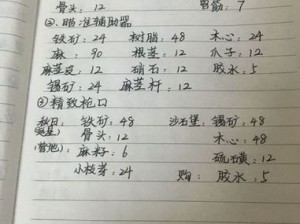 骨头:12 胃筋:7
②. 瞄准辅助器
铁矿:24 树脂:48 木心:24
麻:90 根茎:12 爪子:12
麻茎皮:12 硝石:12 胶水:5
锡矿:24 麻茎秆:12
③ 精致枪口
秋日: 铁矿:48 沙石堡: 锡矿:48
骨头:12 木心:48
(营地): 麻籽:6 硫磺:12
小枝芽:24 购: 胶水:5